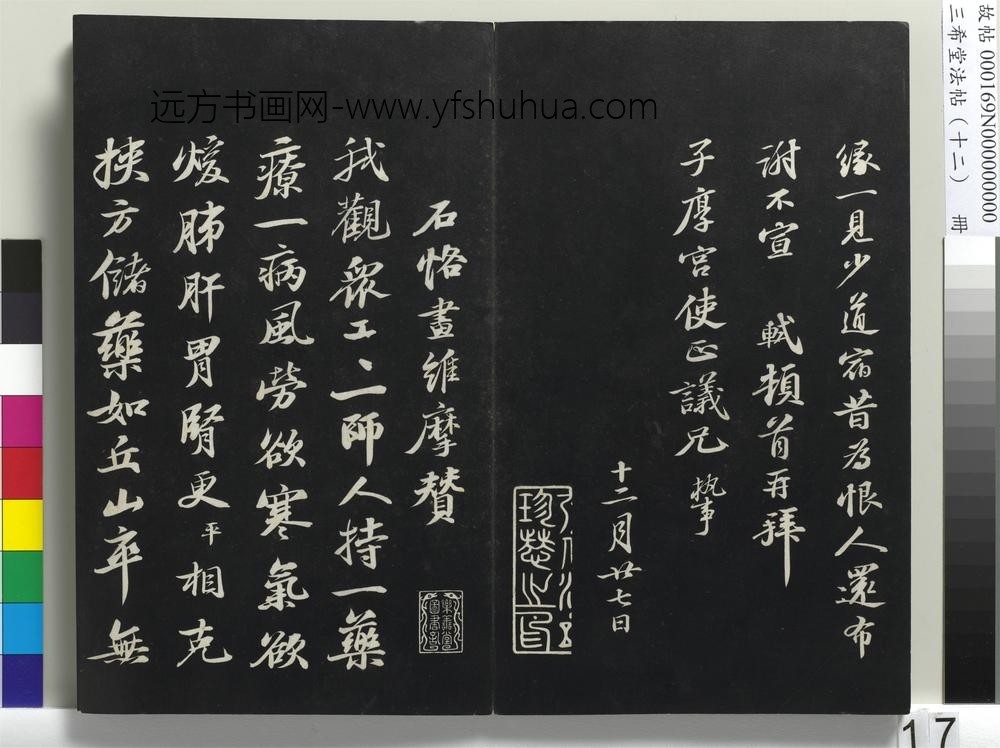 缘一見少道宿昔為恨人還布
謝不宣 軾頓首再拜
子厚宮使正議兄執事
十二月廿七日
石恪畫維摩贊
我觀衆工工二師人持一藥
療一病風勞欲寒氣欲
煖肺肝胃腎更平相克
挾方儲藥如丘山卒無
远方书画网-www.yfshuhua.com
故帖 000169N000000000
三希堂法帖(十二) 冊
17